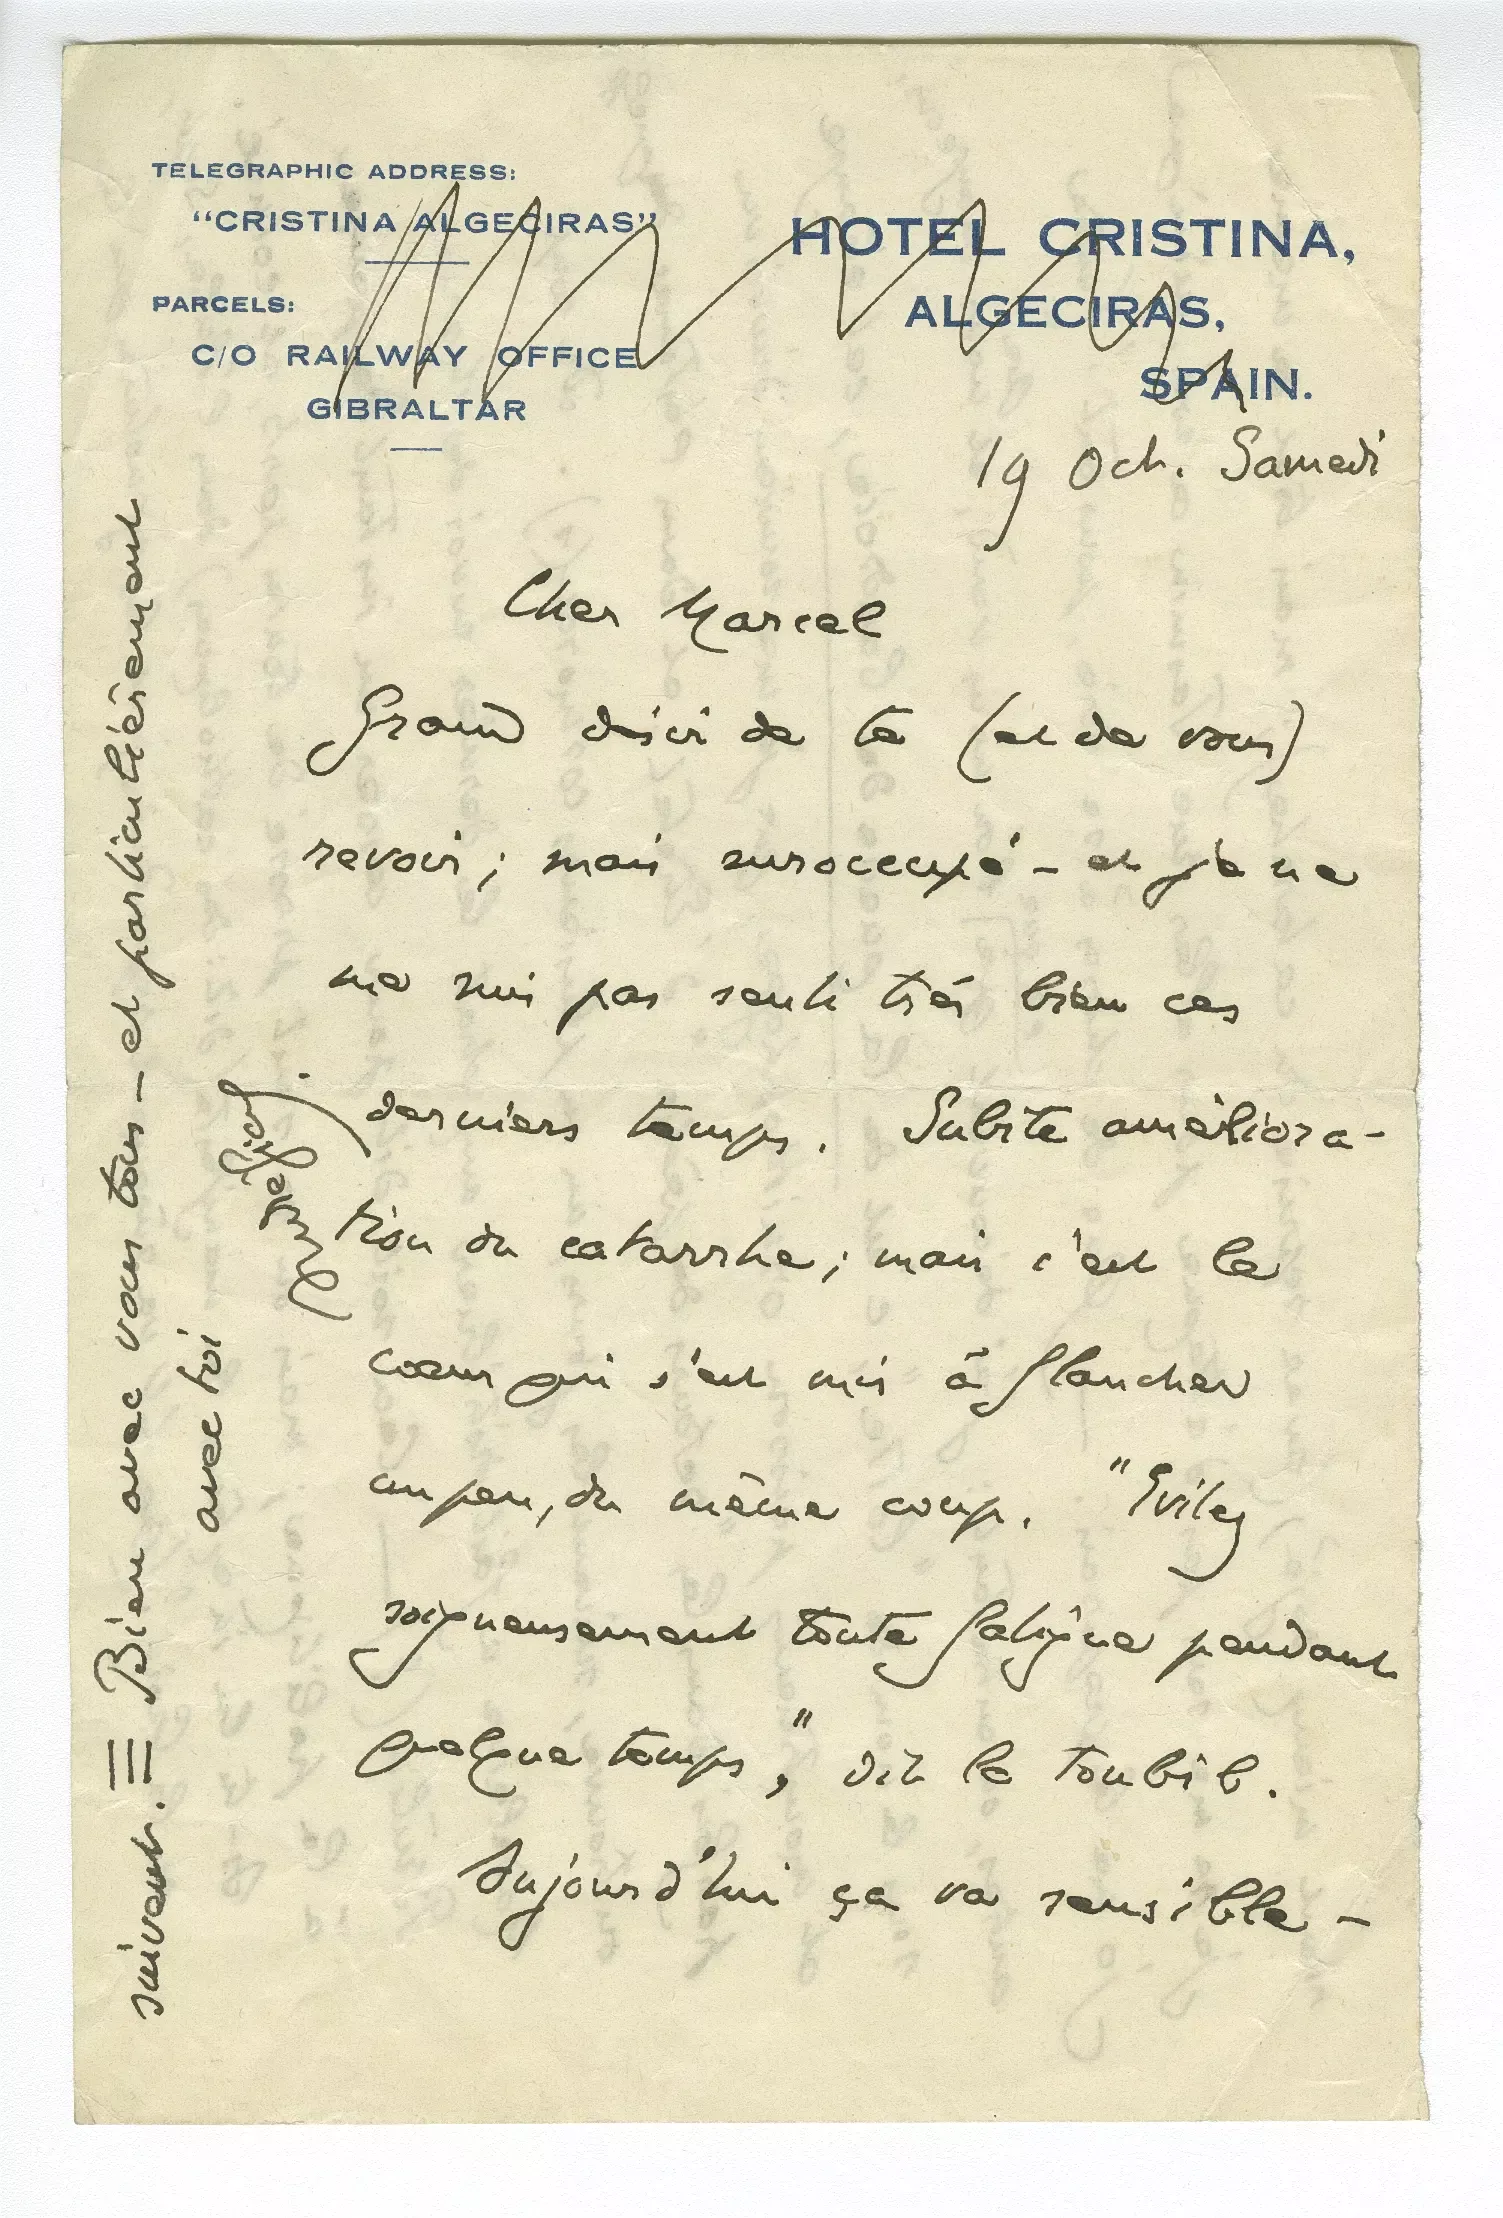 TELEGRAPHIC ADDRESS:
"CRISTINA ALGECIRAS"
PARCELS:
C/O RAILWAY OFFICE
GIBRALTAR
HOTEL CRISTINA,
ALGECIRAS,
SPAIN.
19 Oct. Samedi
Cher Marcel
Grand désir de te (et de vous)
revoir; mais suroccupé – et je ne
me suis pas senti très bien ces
derniers temps. Subite améliora-
tion du catarrhe; mais c'est le
cœur qui s'est mis à flancher
un peu, du même coup. "Evitez
soigneusement toute fatigue pendant
quelque temps," dit le toubib.
Aujourd'hui ça va sensible-
suivent. ≡ Bien avec vous tous – et particulièrement
avec toi